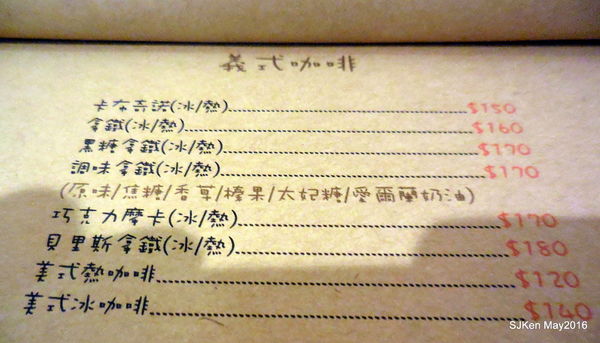 義式咖啡
卡布奇諾(冰/熱)..........$150
拿鐵(冰/熱)..........$160
黑糖拿鐵(冰/熱)..........$170
調味拿鐵(冰/熱)..........$170
(原味/焦糖/香草/榛果/太妃糖/愛爾蘭奶油)
巧克力摩卡(冰/熱)..........$170
貝里斯拿鐵(冰/熱)..........$180
美式熱咖啡..........$120
美式冰咖啡..........$140
SJKen May2016